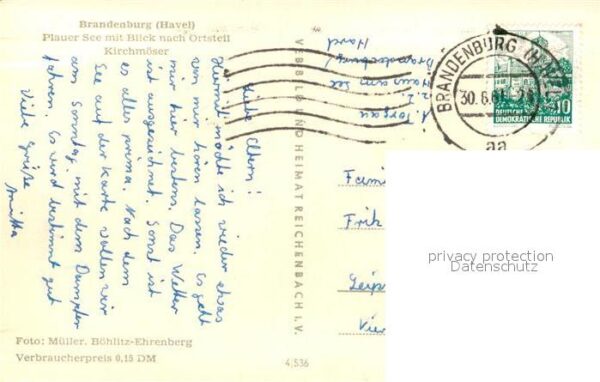 Brandenburg (Havel)
Plauer See mit Blick nach Ortsteil
Kirchmöser
Liebe Eltern!
Hiermit möchte ich wieder etwas
von mir hören lassen. Es geht
mir hier bestens. Das Wetter
ist ausgezeichnet. Sonst ist
es alles prima. Nach dem
See auf der Karte wollen wir
am Sonntag mit dem Dampfer
fahren. Es wird bestimmt gut
Viele Grüße
Foto: Müller, Böhlitz-Ehrenberg
Verbraucherpreis 0,15 DM
VEB BILD UND HEIMAT REICHENBACH I. V.
4/536
Torgau
z. Z.
Haus am See
Brandenburg/
Havel
BRANDENBURG (HAVEL)
30.6.61
aa
10
DEUTSCHE
DEMOKRATISCHE REPUBLIK
Fami
Leip
Vier
privacy protection
Datenschutz